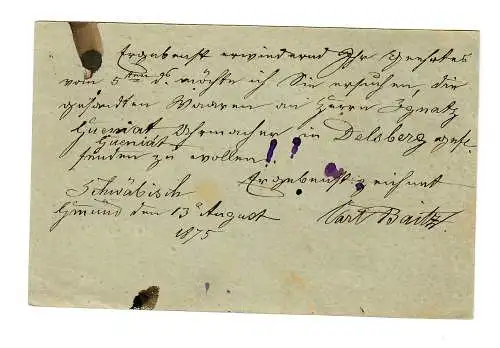 Ergebenst erwiedernd Ihr Geehrtes
vom 5ten ds. möchte ich Sie ersuchen, die
gesandten Waaren an Herrn Ignatz
Gueniat Uhrmacher in Delsberg gefl.
Gueniat
senden zu wollen!!
Ergebenst zeichnet
Schwäbisch
Gmünd den 13 August
1875
Carl Baitz